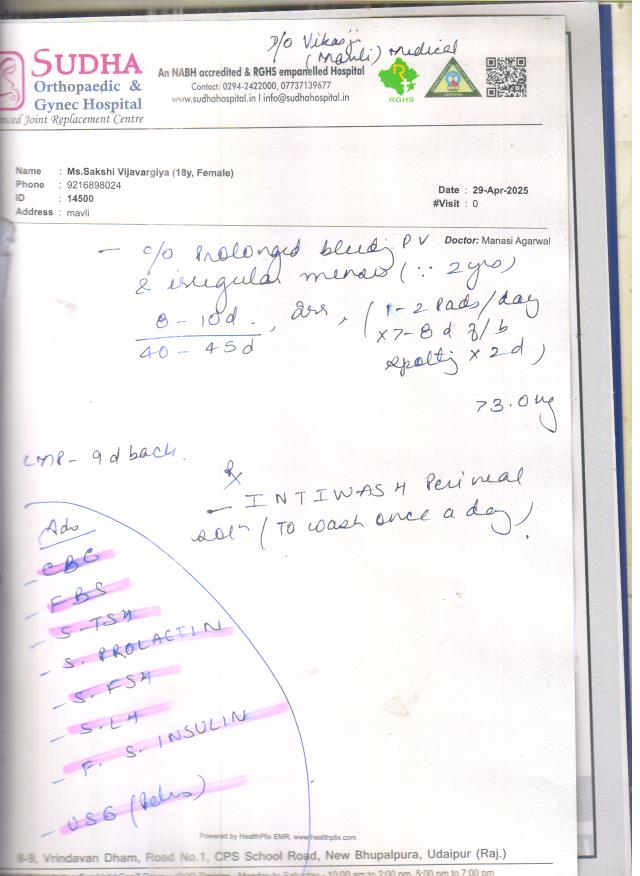 D/O Vikasji
(Mavli) Medical
SUDHA
Orthopaedic &
Gynec Hospital
nced Joint Replacement Centre
An NABH accredited & RGHS empanelled Hospital
Contact: 0294-2422000, 07737139677
www.sudhahospital.in I info@sudhahospital.in
RGHS
Name : Ms.Sakshi Vijavargiya (18y, Female)
Phone : 9216898024
ID : 14500
Address : mavli
Date : 29-Apr-2025
#Visit : 0
Doctor: Manasi Agarwal
- c/o Prolonged bleedg PV
& irregular menses (∵ 2 yrs)
8 - 10d. , , (1-2 Pads/day
40 - 45d
x 7-8 d f/b
spottg x 2d)
73.0 kg
LMP - 9 d back.
Rx
- INTIWASH Perineal
soln (To wash once a day).
Adv
- CBC
- FBS
- S-TSH
- S. PROLACTIN
- S. FSH
- S. LH
- F. S. INSULIN
- USG (Pelvis)
Powered by HealthPlix EMR, www.healthplix.com
8-9, Vrindavan Dham, Road No.1, CPS School Road, New Bhupalpura, Udaipur (Raj.)
Monday to Saturday - 10:00 am to 2:00 pm, 5:00 pm to 7:00 pm